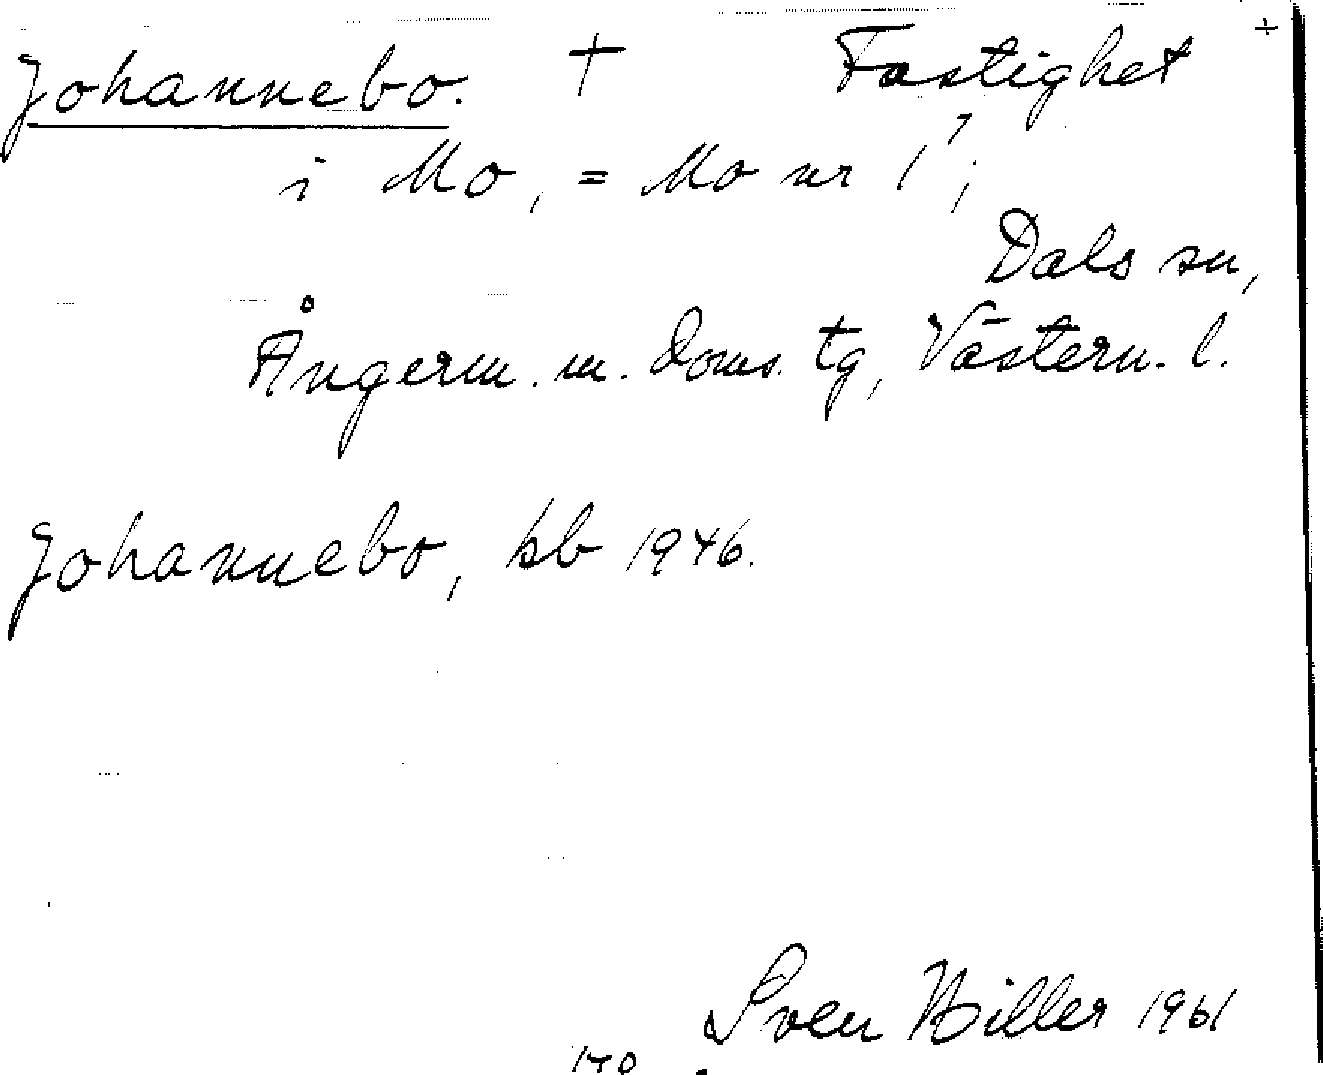 Johannebo. † Fastighet +
i Mo, = Mo nr 1⁷;
Dals sn,
Ångerm. m. doms. tg, Västern. l.
Johannebo, kb 1946.
Sven Hiller 1961
140